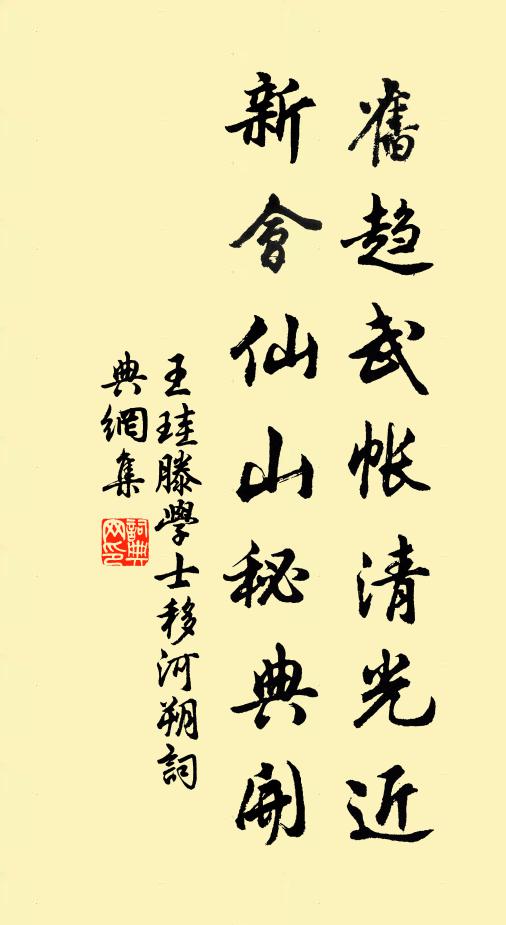 舊趨武帳清光近
新會仙山秘典開
王珪滕學士移河朔詞
典網集
詞典網印